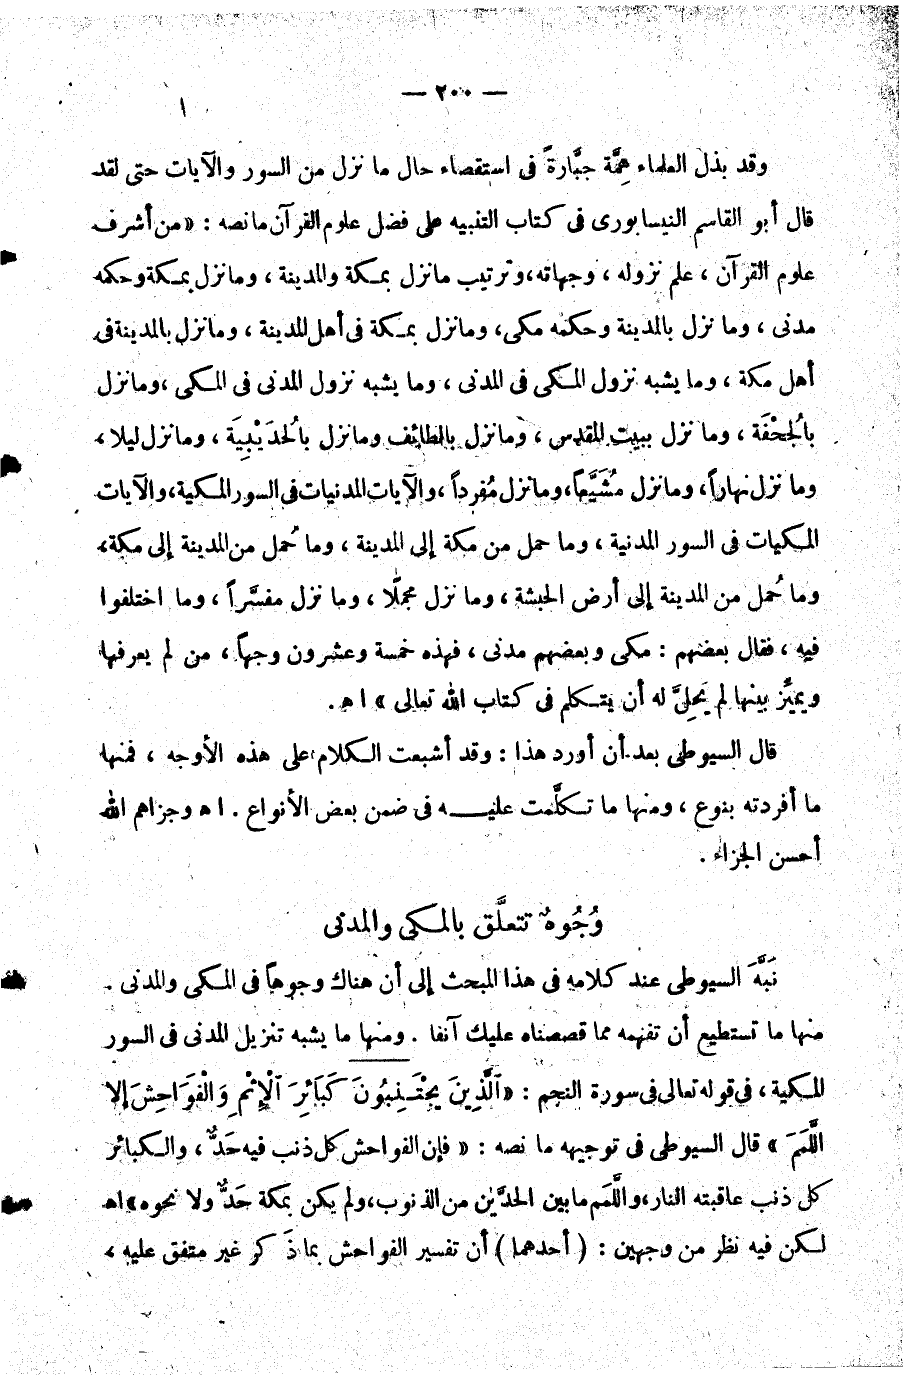 — ٢٠٠ —
وقد بذل العلماء هِمَّة جبَّارةً فى استقصاء حال ما نزل من السور والآيات حتى لقد
قال أبو القاسم النيسابورى فى كتاب التنبيه على فضل علوم القرآن مانصه : «من أشرف
علوم القرآن ، علم نزوله ، وجهاته، وترتيب مانزل بمكة والمدينة ، ومانزل بمكة وحكمه
مدنى ، وما نزل بالمدينة وحكمه مكى، ومانزل بمكة فى أهل المدينة ، ومانزل بالمدينة فى
أهل مكة ، وما يشبه نزول المكى فى المدنى ، وما يشبه نزول المدنى فى المكى ،ومانزل
بالُجحْفَة ، وما نزل ببيت المقدس ، ومانزل بالطائف ومانزل بالُحدَيْبِيَة ، ومانزل ليلا ،
وما نزل نهاراً، ومانزل مُشَيَّعاً،ومانزل مُفرداً ،والآيات المدنيات فى السور المكية،والآيات
المكيات فى السور المدنية ، وما حمل من مكة إلى المدينة ، وما حُمل من المدينة إلى مكة،
وما حُمل من المدينة إلى أرض الحبشة ، وما نزل مجملًا ، وما نزل مفسَّراً ، وما اختلفوا
فيه ، فقال بعضهم : مكى وبعضهم مدنى ، فهذه خمسة وعشرون وجهاً ، من لم يعرفها
ويميِّز بينها لم يَحِلَّ له أن يتكلم فى كتاب الله تعالى » ا هـ .
قال السيوطى بعد أن أورد هذا : وقد أشبعت الكلام على هذه الأوجه ، فمنها
ما أفردته بنوع ، ومنها ما تكلَّمت عليـــه فى ضمن بعض الأنواع . ا هـ وجزاهم الله
أحسن الجزاء .
وُجُوهٌ تتعلَّق بالمكى والمدنى
نَبَّهَ السيوطى عند كلامه فى هذا المبحث إلى أن هناك وجوهاً فى المكى والمدنى .
منها ما تستطيع أن تفهمه مما قصصناه عليك آنفا . ومنها ما يشبه تنزيل المدنى فى السور
المكية ، فى قوله تعالى فى سورة النجم : «ٱلَّذِينَ يَجْتَـنِبُونَ كَبَائِرَ ٱلْإِثْمِ وَالْفَوَاحِشَ إلا
اللَّمَمَ » قال السيوطى فى توجيهه ما نصه : « فإن الفواحش كل ذنب فيه حَدٌّ ، والكبائر
كل ذنب عاقبته النار،واللَّمَم مابين الحدَّين من الذنوب،ولم يكن بمكة حَدٌّ ولا نحوه»اهـ
لكن فيه نظر من وجهين : ( أحدهما ) أن تفسير الفواحش بما ذَكر غير متفق عليه ،